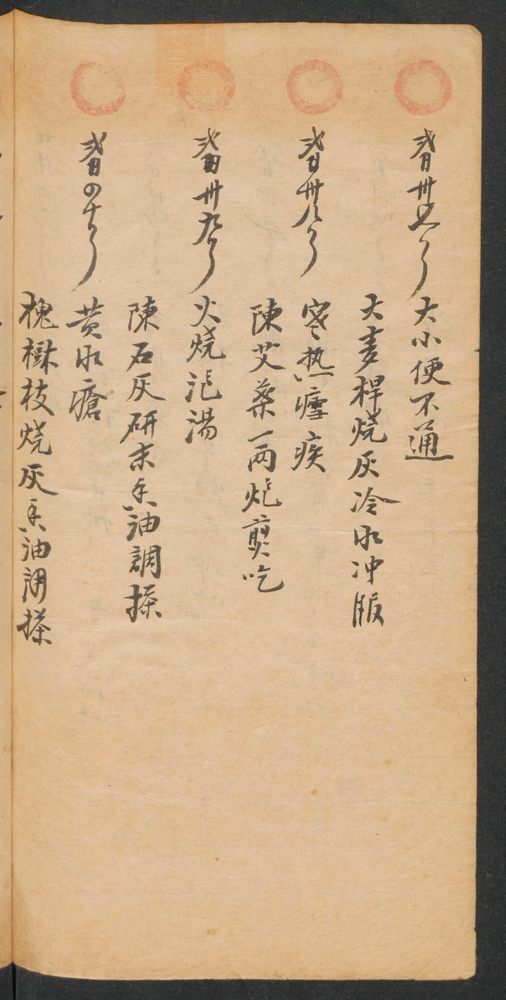 大小便不通
大麦桿烧灰冷水冲服
寒热瘧疾
陳艾葉一両炮煎吃
火烧汜湯
陳石灰研末香油調搽
黄水瘡
槐樹枝烧灰香油調搽